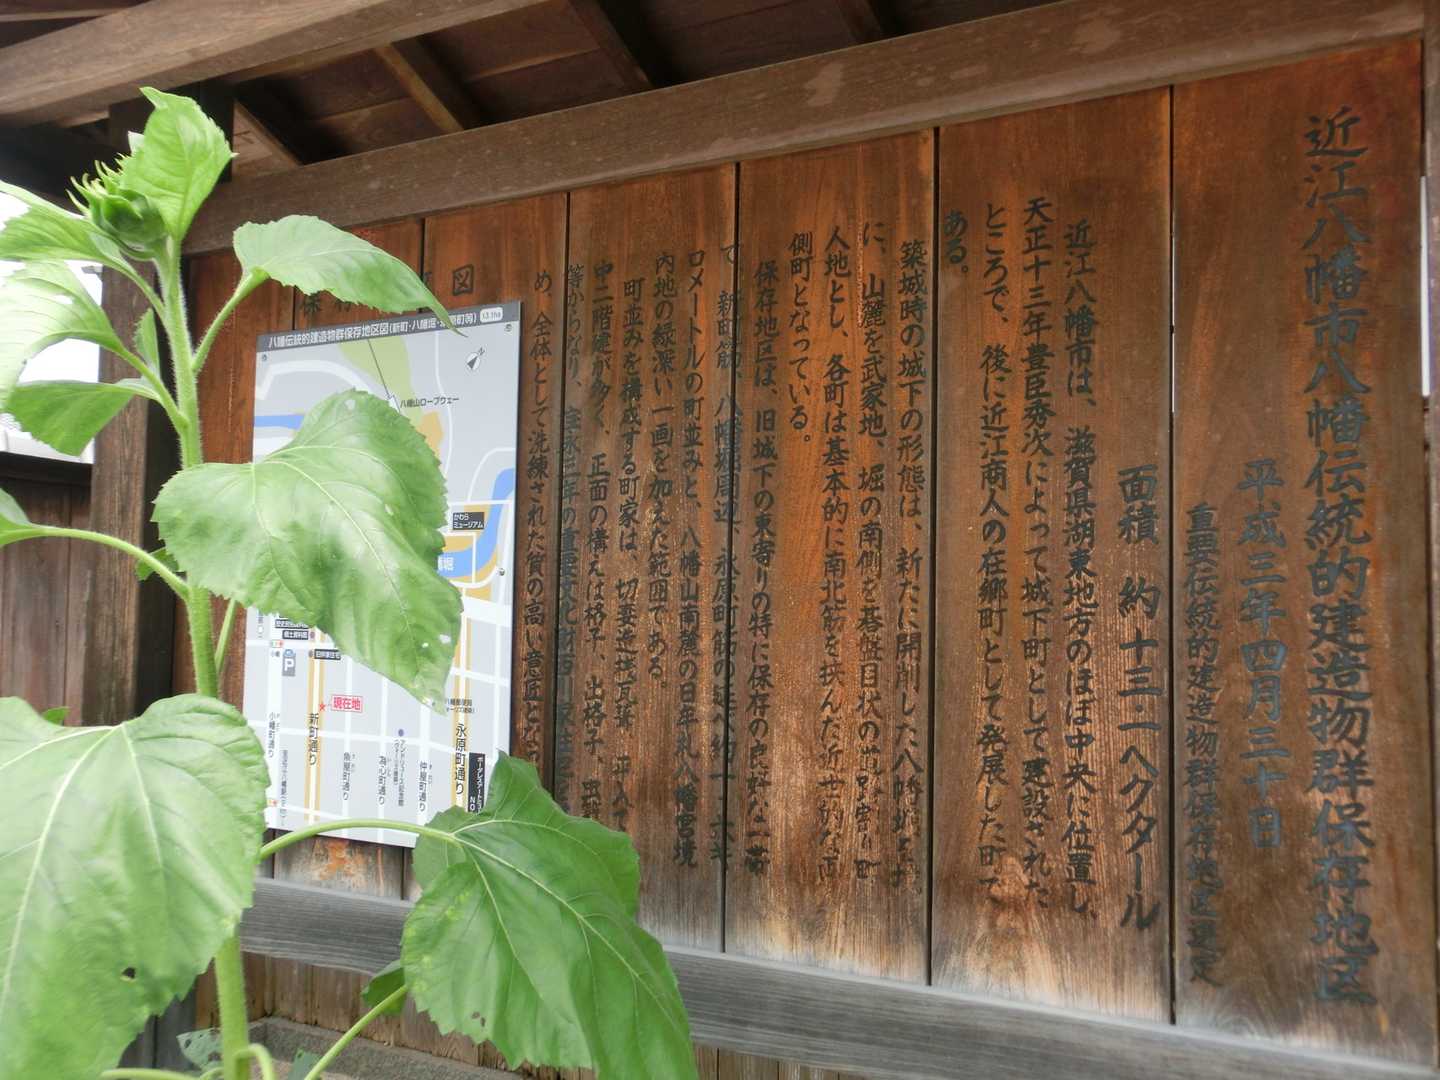 近江八幡市八幡伝統的建造物群保存地区
平成三年四月三十日
重要伝統的建造物群保存地区選定
面積 約十三・一ヘクタール
近江八幡市は、滋賀県湖東地方のほぼ中央に位置し、
天正十三年豊臣秀次によって城下町として建設された
ところで、後に近江商人の在郷町として発展した町で
ある。
築城時の城下の形態は、新たに開削した八幡堀を
に、山麓を武家地、堀の南側を碁盤目状の 町
人地とし、各町は基本的に南北筋を挟んだ近世的な両
側町となっている。
保存地区は、旧城下の東寄りの特に保存の良好な一帯
で 新町筋、八幡堀周辺、永原町筋の延べ約
ロメートルの町並みと、八幡山南麓の日牟礼八幡宮境
内地の緑深い一画を加えた範囲である。
町並みを構成する町家は、切妻造桟瓦葺、平入で
中二階建が多く、正面の構えは格子、出格子、
等からなり、 年の重要文化財西川家住
め、全体として洗練された質の高い意匠とな
図
保
八幡伝統的建造物群保存地区図(新町・八幡堀・永原町等)
13.1ha
八幡山ロープウェー
かわら
ミュージアム
幡堀
郷土資料館
旧伴家住宅
P
現在地
小幡町通り
新町通り
魚屋町通り
為心町通り
アンドリュース記念館
仲屋町通り
永原町通り
ボーダレスアートミュ
NO